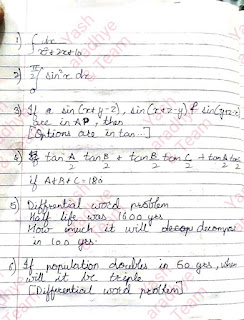 1) ∫ dx
x²+2x+10
2) π/2 ∫ 0 sin²x dx
3) If a sin(x+y-z), sin(x+z-y) & sin(y+z-x)
are in AP, then
[Options are in tan...]
4) tan A/2 tan B/2 + tan B/2 tan C/2 + tan A/2 tan C/2
if A+B+C=180
5) Diffrential word problem
Half life was 1600 yrs
How much it will decompose
in 100 yrs.
6) If population doubles in 50 yrs, when
will it be triple
[Differential word problem]
Yash
aradhye
Team